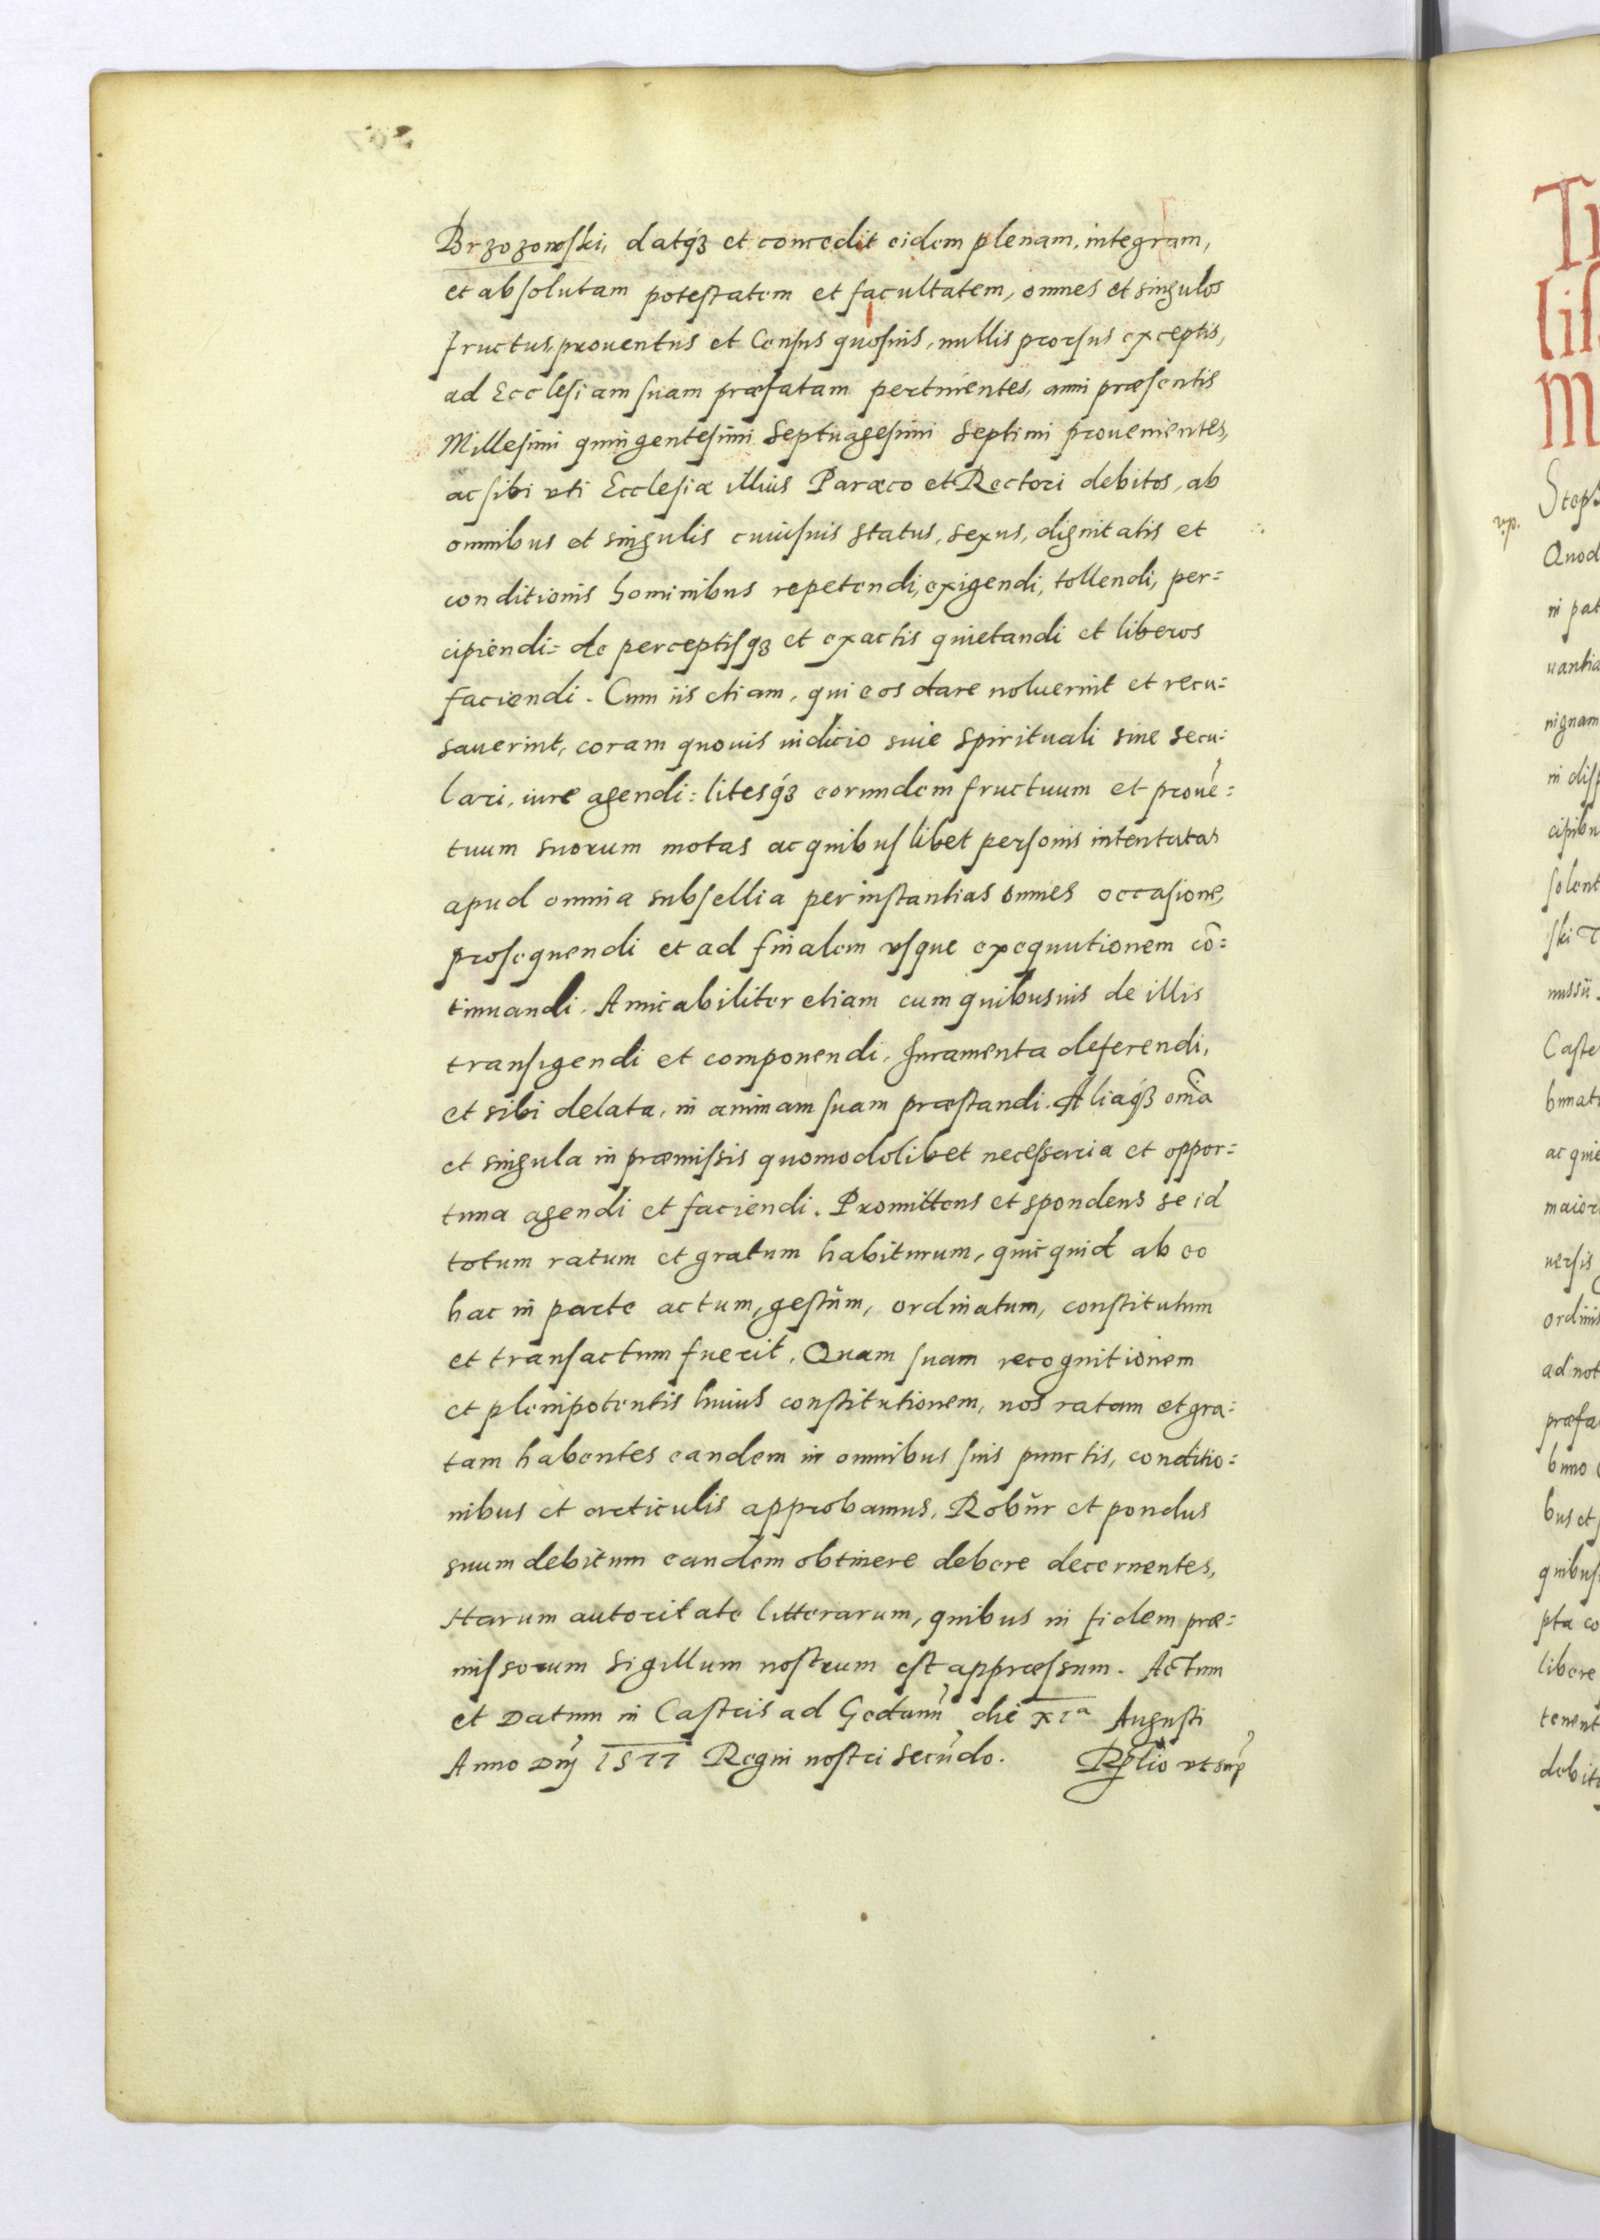 Brzozowski, datq́ꝫ et concedit eidem plenam, integram,
et absolutam potestatem et facultatem, omnes et singulos
fructus, prouentus et Census quosuis, nullis prorsus exceptis,
ad Ecclesiam suam præfatam pertinentes, anni præsentis
Millesimi quingentesimi Septuagesimi Septimi prouenientes,
ac sibi vti Ecclesiæ illius Paræco et Rectori debitos, ab
omnibus et singulis cuiusuis status, sexus, dignitatis et
conditionis hominibus repetendi, exigendi, tollendi, per=
cipiendi= de perceptisqꝫ et exactis quietandi et liberos
faciendi. Cum iis etiam, qui eos dare noluerint et recu=
sauerint, coram quouis iudicio siue Spirituali siue secu=
lari, iure agendi= litesq́ꝫ eorundem fructuum et prouē=
tuum suorum motas ac quibuslibet personis intentatas
apud omnia subsellia per instantias omnes occasione,
prosequendi et ad finalem vsque exequutionem cō=
tinuandi. Amicabiliter etiam cum quibusuis de illis
transigendi et componendi. Juramenta deferendi,
et sibi delata, in animam suam præstandi. Aliaq́ꝫ om̄ia
et singula in præmissis quomodolibet necessaria et oppor=
tuna agendi et faciendi. Promittens et spondens se id
totum ratum et gratum habiturum, quicquid ab eo
hac in parte actum, gestum, ordinatum, constitutum
et transactum fuerit. Quam suam recognitionem
et plenipotentis huius constitutionem, nos ratam et gra=
tam habentes eandem in omnibus suis punctis, conditio=
nibus et articulis approbamus, Robur et pondus
suum debitum eandem obtinere debere decernentes,
Harum autoritate litterarum, quibus in fidem præ=
missorum Sigillum nostrum est appressum. Actum
et Datum in Castris ad Gedanū die XIa Augusti
Anno Dnj 1577 Regni nostri secūdo. Rᶩlio vt sup
Ti
lis
M
Steph
vp.
Quod
ni pat
uantia
nignam
in disp
cipibu
solent
ski
missū
Caste
bunat
ac quie
maior
uersis
ordinis
ad not
præfa
buno
bus et
quibus
pta co
libere
tenent
debit